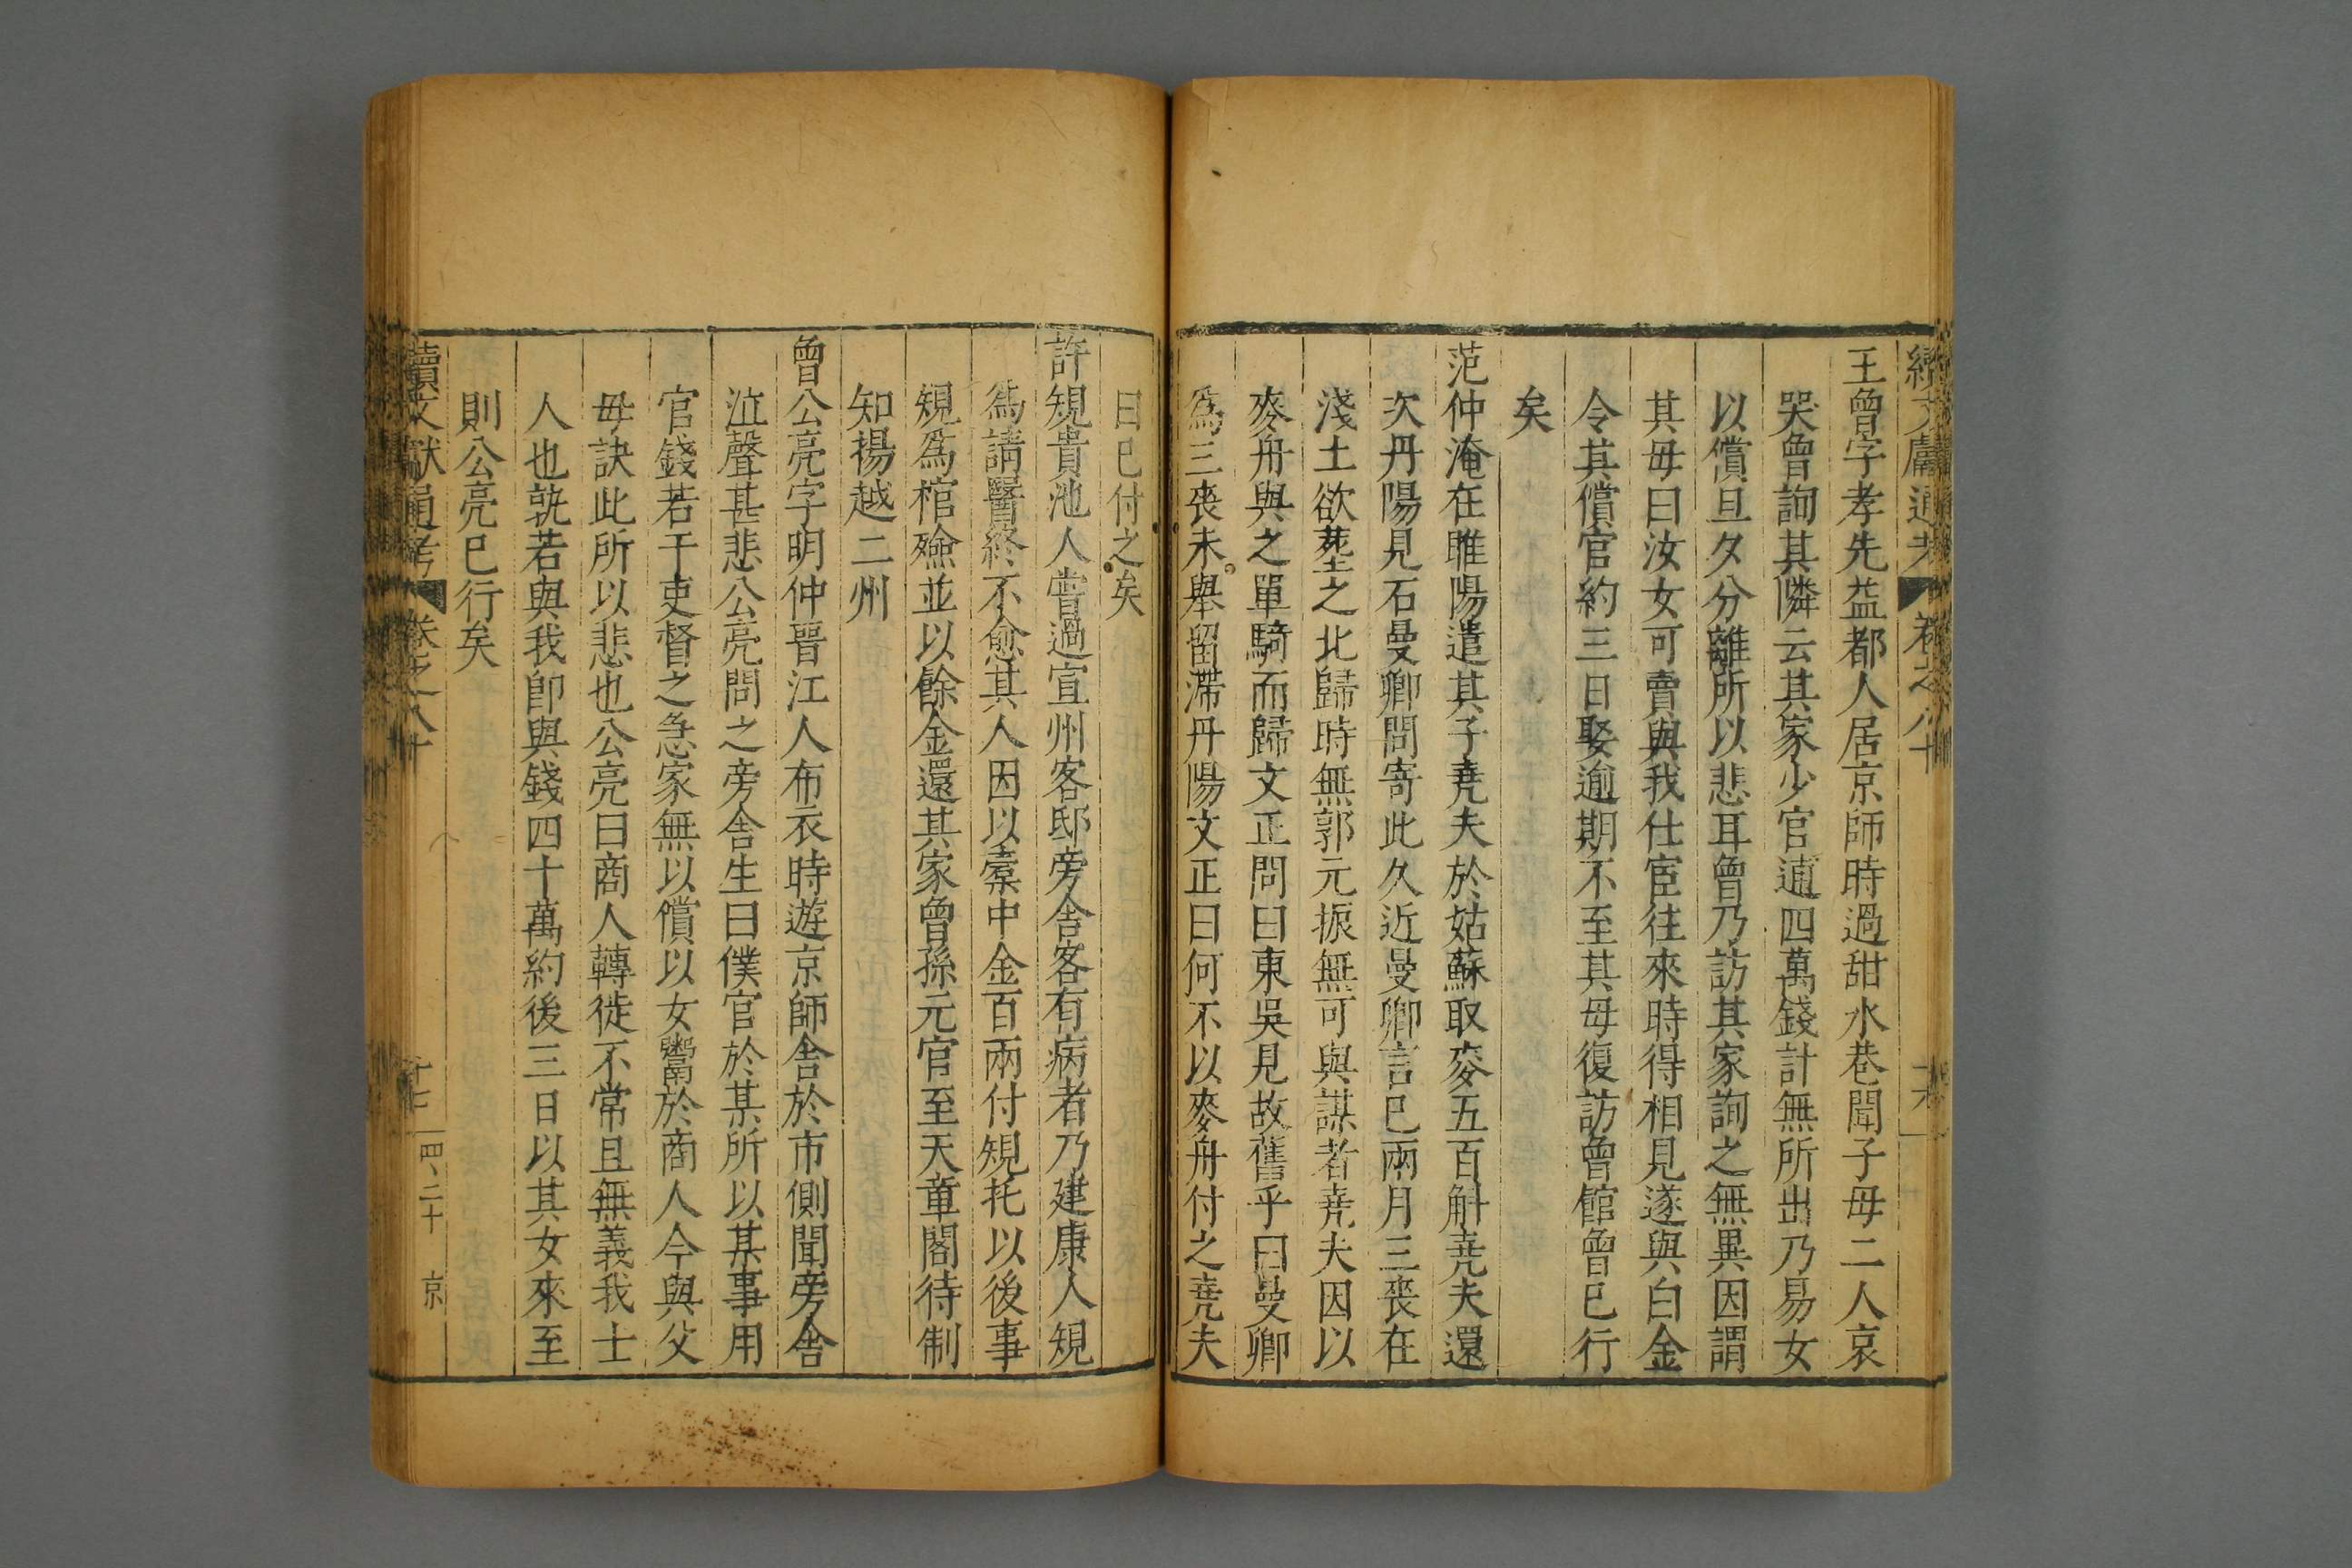 續文獻通考 卷之八十
王曾字孝先益都人居京師時過甜水巷聞子母二人哀
哭曾詢其隣云其家少官逋四萬錢計無所出乃易女
以償旦夕分離所以悲耳曾乃訪其家詢之無異因謂
其毋曰汝女可賣與我仕宦往來時得相見遂與白金
令其償官約三日娶逾期不至其毋復訪曾館曾已行
矣
范仲淹在睢陽遣其子堯夫於姑蘇取麥五百斛堯夫還
次丹陽見石曼卿問寄此久近曼卿言已兩月三喪在
淺土欲塟之北歸時無郭元振無可與謀者堯夫因以
麥舟與之單騎而歸文正問曰東吳見故舊乎曰曼卿
爲三喪未舉留滯丹陽文正曰何不以麥舟付之堯夫
曰已付之矣
許規貴池人嘗過宣州客邸旁舍客有病者乃建康人規
爲請醫終不愈其人因以橐中金百兩付規托以後事
規爲棺殮並以餘金還其家曾孫元官至天章閣待制
知揚越二州
曾公亮字明仲晉江人布衣時遊京師舍於市側聞旁舍
泣聲甚悲公亮問之旁舍生曰僕官於某所以某事用
官錢若干吏督之急家無以償以女鬻於商人今與父
毋訣此所以悲也公亮曰商人轉徙不常且無義我士
人也孰若與我卽與錢四十萬約後三日以其女來至
則公亮已行矣
續文獻通考 卷之八十 十七 四、二十 京